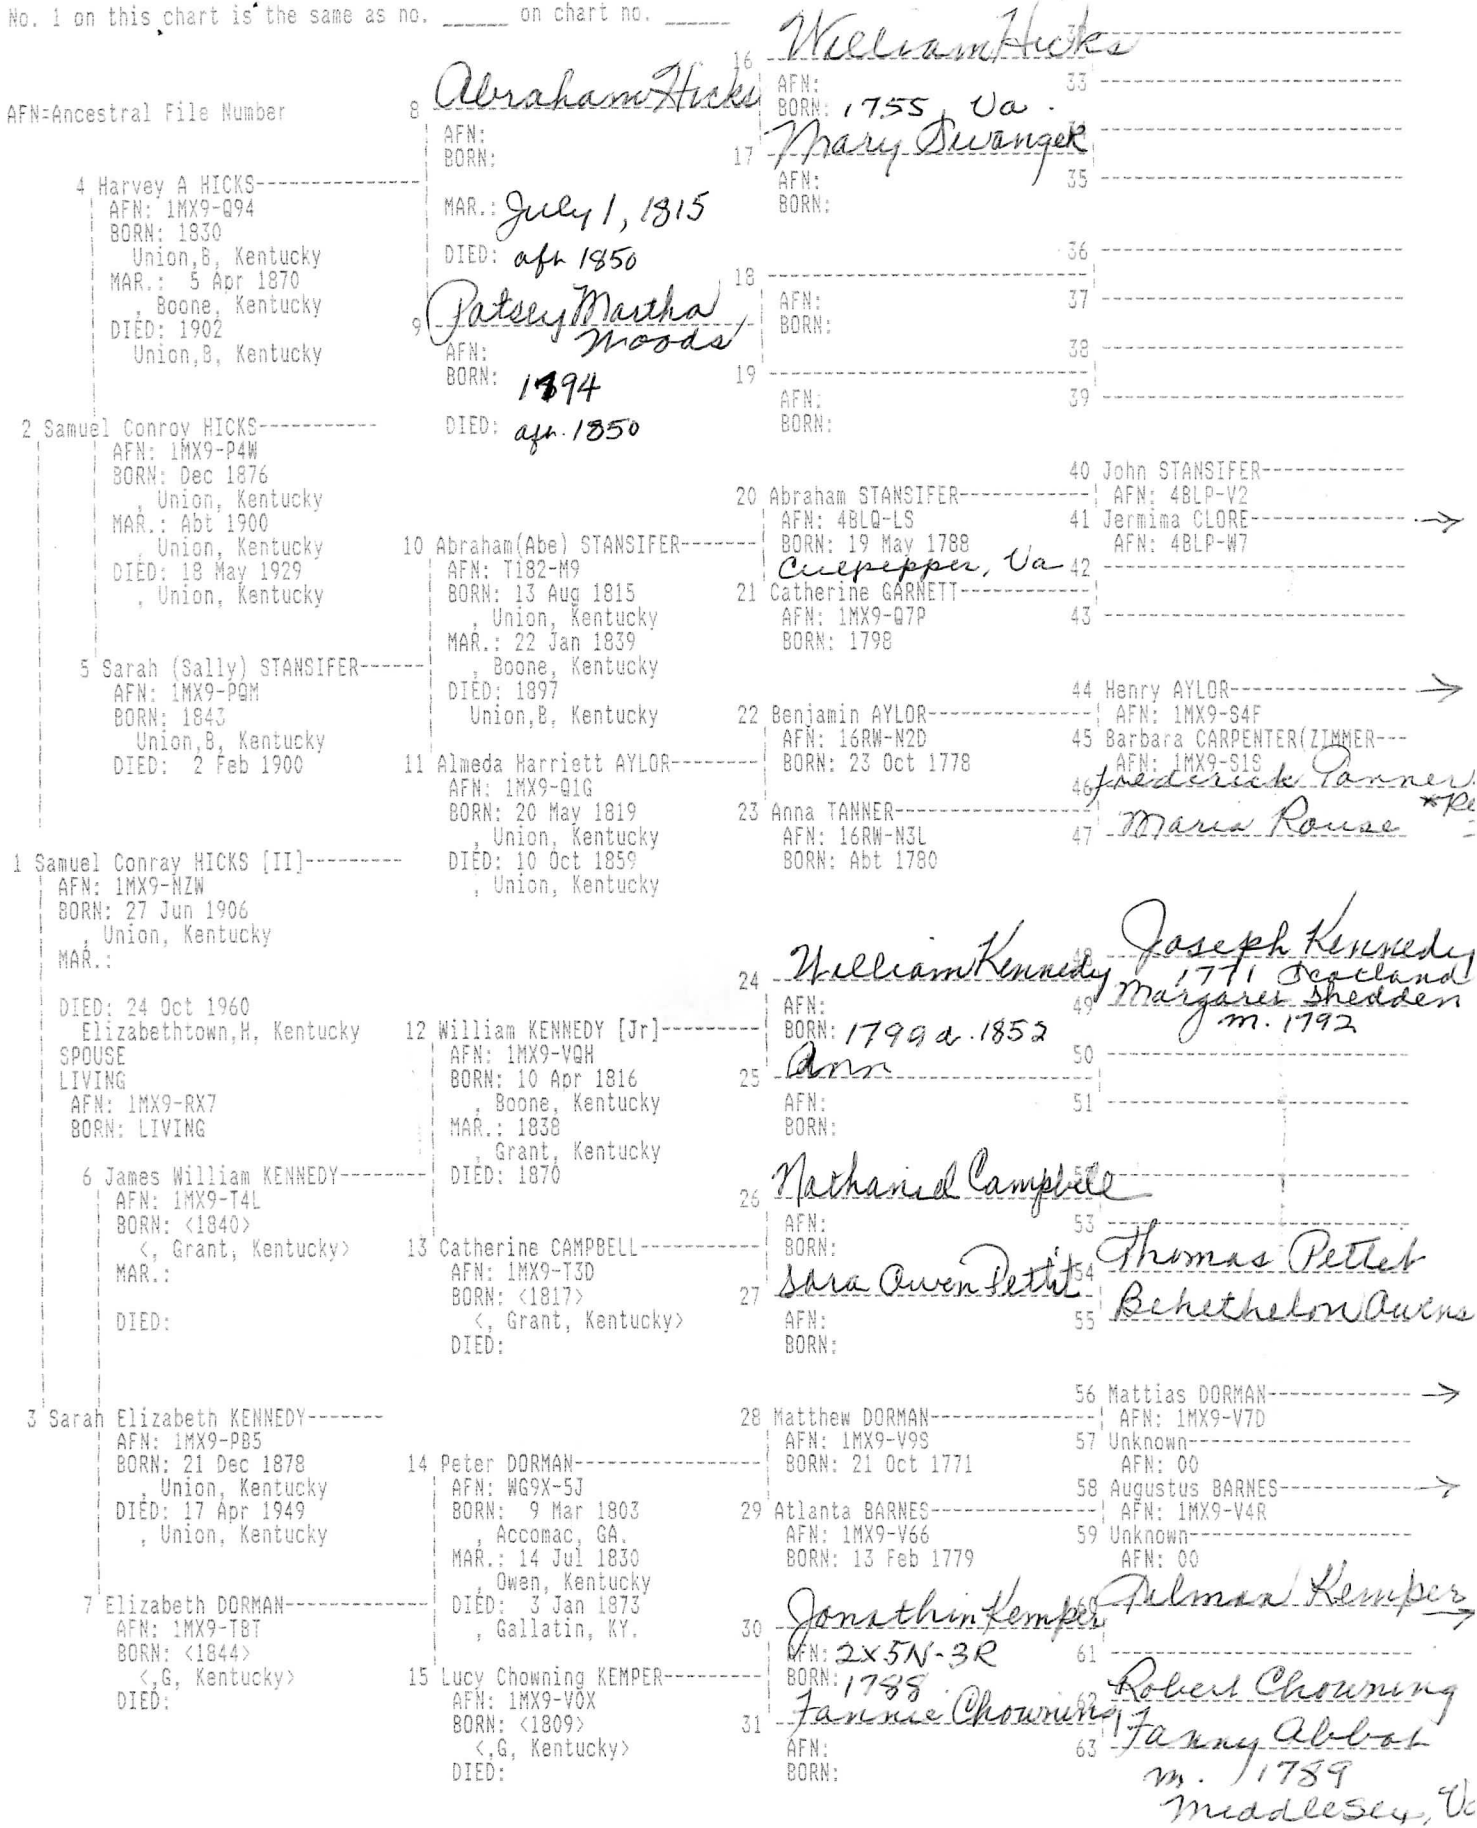 No. 1 on this chart is the same as no. ______ on chart no. ______
AFN=Ancestral File Number
1 Samuel Conray HICKS [II]
AFN: 1MX9-NZW
BORN: 27 Jun 1906
, Union, Kentucky
MAR.:
DIED: 24 Oct 1960
Elizabethtown,H, Kentucky
SPOUSE
LIVING
AFN: 1MX9-RX7
BORN: LIVING
2 Samuel Conroy HICKS
AFN: 1MX9-P4W
BORN: Dec 1876
, Union, Kentucky
MAR.: Abt 1900
, Union, Kentucky
DIED: 18 May 1929
, Union, Kentucky
3 Sarah Elizabeth KENNEDY
AFN: 1MX9-PB5
BORN: 21 Dec 1878
, Union, Kentucky
DIED: 17 Apr 1949
, Union, Kentucky
4 Harvey A HICKS
AFN: 1MX9-Q94
BORN: 1830
Union,B, Kentucky
MAR.: 5 Apr 1870
, Boone, Kentucky
DIED: 1902
Union,B, Kentucky
5 Sarah (Sally) STANSIFER
AFN: 1MX9-PQM
BORN: 1843
Union,B, Kentucky
DIED: 2 Feb 1900
6 James William KENNEDY
AFN: 1MX9-T4L
BORN: <1840>
<, Grant, Kentucky>
MAR.:
DIED:
7 Elizabeth DORMAN
AFN: 1MX9-TBT
BORN: <1844>
<,G, Kentucky>
DIED:
8 Abraham Hicks
AFN:
BORN:
MAR.: July 1, 1815
DIED: aft 1850
9 Patsey Martha
Woods
AFN:
BORN: 1794
DIED: aft. 1850
10 Abraham(Abe) STANSIFER
AFN: T182-M9
BORN: 13 Aug 1815
, Union, Kentucky
MAR.: 22 Jan 1839
, Boone, Kentucky
DIED: 1897
Union,B, Kentucky
11 Almeda Harriett AYLOR
AFN: 1MX9-Q1G
BORN: 20 May 1819
, Union, Kentucky
DIED: 10 Oct 1859
, Union, Kentucky
12 William KENNEDY [Jr]
AFN: 1MX9-VQH
BORN: 10 Apr 1816
, Boone, Kentucky
MAR.: 1838
, Grant, Kentucky
DIED: 1870
13 Catherine CAMPBELL
AFN: 1MX9-T3D
BORN: <1817>
<, Grant, Kentucky>
DIED:
14 Peter DORMAN
AFN: WG9X-5J
BORN: 9 Mar 1803
, Accomac, GA.
MAR.: 14 Jul 1830
, Owen, Kentucky
DIED: 3 Jan 1873
, Gallatin, KY.
15 Lucy Chowning KEMPER
AFN: 1MX9-VOX
BORN: <1809>
<,G, Kentucky>
DIED:
16 William Hicks
AFN:
BORN: 1755, Va.
17 Mary Swanger
AFN:
BORN:
18
AFN:
BORN:
19
AFN:
BORN:
20 Abraham STANSIFER
AFN: 4BLQ-LS
BORN: 19 May 1788
Culpepper, Va
21 Catherine GARNETT
AFN: 1MX9-Q7P
BORN: 1798
22 Benjamin AYLOR
AFN: 16RW-N2D
BORN: 23 Oct 1778
23 Anna TANNER
AFN: 16RW-N3L
BORN: Abt 1780
24 William Kennedy
AFN:
BORN: 1799 d. 1852
25 Ann
AFN:
BORN:
26 Nathaniel Campbell
AFN:
BORN:
27 Sara Owen Pettit
AFN:
BORN:
28 Matthew DORMAN
AFN: 1MX9-V9S
BORN: 21 Oct 1771
29 Atlanta BARNES
AFN: 1MX9-V66
BORN: 13 Feb 1779
30 Jonathin Kemper
AFN: 2X5N-3R
BORN: 1788
31 Fannie Chowning
AFN:
BORN:
32
33
34
35
36
37
38
39
40 John STANSIFER
AFN: 4BLP-V2
41 Jermima CLORE
AFN: 4BLP-W7
42
43
44 Henry AYLOR
AFN: 1MX9-S4F
45 Barbara CARPENTER(ZIMMER
AFN: 1MX9-S1S
46 Frederick Tanner
47 Maria Rouse
48 Joseph Kennedy
1771 Scotland
49 Margaret Shedden
m. 1792
50
51
52
53
54 Thomas Pettet
55 Behethelon Owens
56 Mattias DORMAN
AFN: 1MX9-V7D
57 Unknown
AFN: 00
58 Augustus BARNES
AFN: 1MX9-V4R
59 Unknown
AFN: 00
60 Tilman Kemper
61
62 Robert Chowning
63 Fanny Abbot
m. 1789
Middlesex, Va